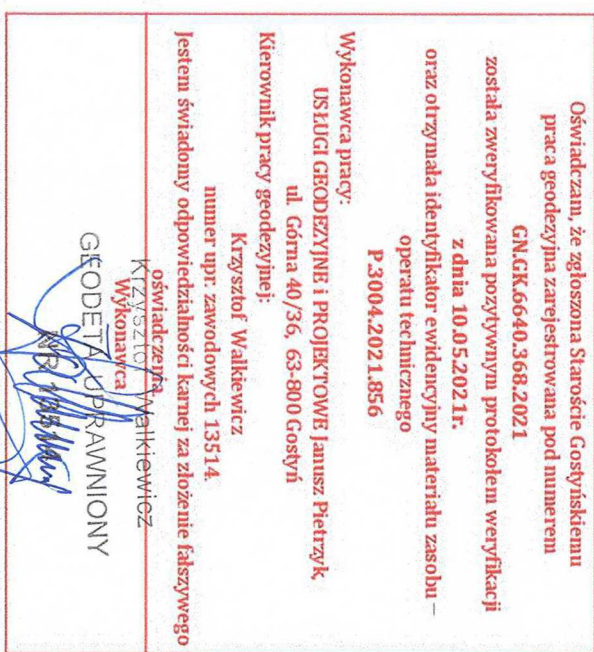 Oświadczam, że zgłoszona Staroście Gostyńskiemu
praca geodezyjna zarejestrowana pod numerem
GN.GK.6640.368.2021
została zweryfikowana pozytywnym protokołem weryfikacji
z dnia 10.05.2021r.
oraz otrzymała identyfikator ewidencyjny materiału zasobu –
operatu technicznego
P.3004.2021.856
Wykonawca pracy:
USŁUGI GEODEZYJNE i PROJEKTOWE Janusz Pietrzyk,
ul. Górna 40/36, 63-800 Gostyń
Kierownik pracy geodezyjnej:
Krzysztof Walkiewicz
numer upr. zawodowych 13514.
Jestem świadomy odpowiedzialności karnej za złożenie fałszywego
oświadczenia
Wykonawca
Krzysztof Walkiewicz
GEODETA UPRAWNIONY